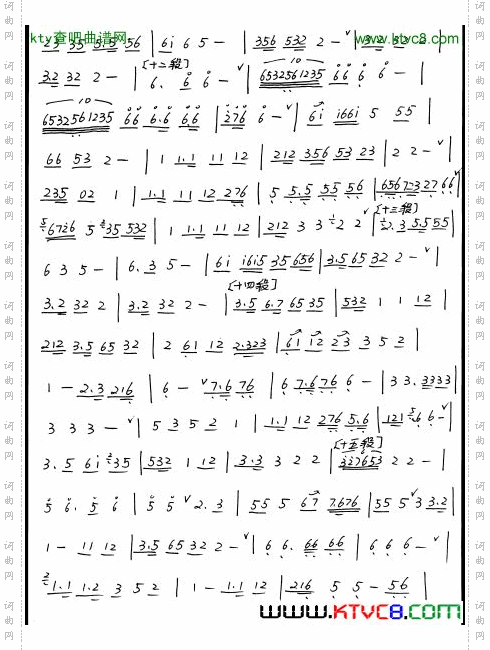 23 35 3.5 56 | 6i 6 5 - | 356 532 2 - ˅ | 3.2 32 2 |
kty查吧曲谱网 www.ktvc8.com
3.2 32 2 - | [十二段] 6. 6 6 - ˅ | 6532561235 66 6 6 - |
6532561235 66 6.6 66 | 276 6 - ˅ | 6i i66i 5 55 |
66 53 2 - | 1 1.1 11 12 | 212 356 53 23 | 2 2 - ˅ |
235 02 1 | 1.1 11 12 276 | 5 5.5 55 56 | 656723 27 66 ˅ |
676 5 35 532 | 1 1.1 11 12 | 212 3 3 2 2 ˅ | [十三段] 2.3 5.5 55 |
6 3 5 - | 6.3 5 - | 6i i6i5 35 656 | 3.5 65 32 2 - ˅ |
3.2 32 2 | 3.2 32 2 - | [十四段] 3.5 6.7 65 35 | 532 1 1 12 |
212 3.5 65 32 | 2 61 12 2.323 | 61 12 23 3 5 2 |
1 - 2.3 216 | 6 - ˅ 7.6 76 | 6 7.6 76 6 - | 3 3. 3333 |
3 3 3 - ˅ | 5 3 5 2 1 | 1.1 12 276 5.6 | 121 6 6 - ˅ |
3.5 6i 35 | 532 1 12 | 3.3 3 2 2 | [十五段] 327653 2 2 - |
5 6. 5 6 | 5 5 ˅ 2.3 | 55 5 67 7.676 | 55 5 ˅ 3 3.2 |
1 - 11 12 | 3.5 65 32 2 - ˅ | 6 6. 66 66 | 6 6 6 - ˅ |
1.1 1.2 3 5 2 | 1 - 1.1 12 | 216 5 5 - 56 |
www.KTVC8.com
词曲网